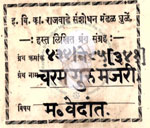 इ. वि. का. राजवाडे संशोधन मंडळ धुळे.
हस्त लिखित ग्रंथ संग्रह
ग्रंथ क्रमांक
ग्रंथ नाम चरम गुरु मंजरी
विषय म. वेदांत.